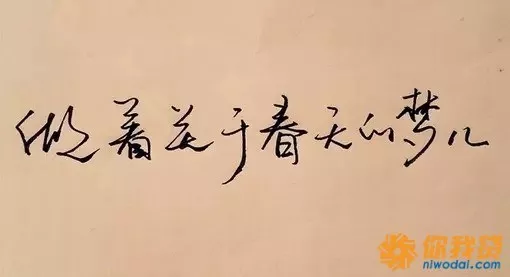 做着关于春天的梦儿
你我贷
niwodai.com